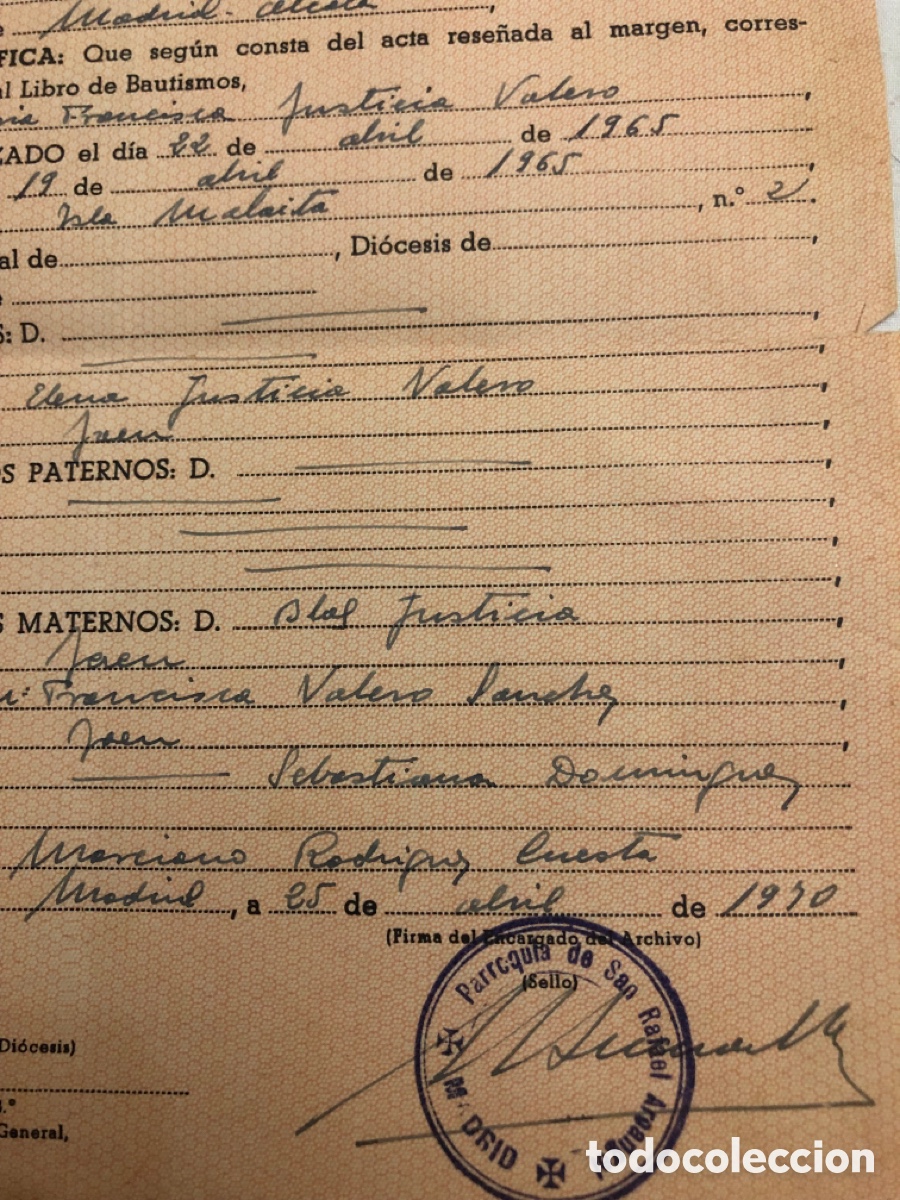 Madrid-Alcalá,
FICA: Que según consta del acta reseñada al margen, corres-
al Libro de Bautismos,
Francisca Justicia Valero,
ZADO el día 22 de abril de 1965
19 de abril de 1965,
Isla Malaita, n.º 2.
al de, Diócesis de,
S: D.,
Elena Justicia Valero,
Jaen,
OS PATERNOS: D.,
S MATERNOS: D. Blas Justicia,
Jaen,
Francisca Valero Sanchez,
Jaen,
Sebastiana Dominguez
Marciano Rodriguez Cuesta
Madrid, a 25 de abril de 1970
(Firma del Encargado del Archivo)
(Sello)
Parroquia de San Rafael Arcangel
M DRID
Diócesis)
B.º
General,
todocoleccion